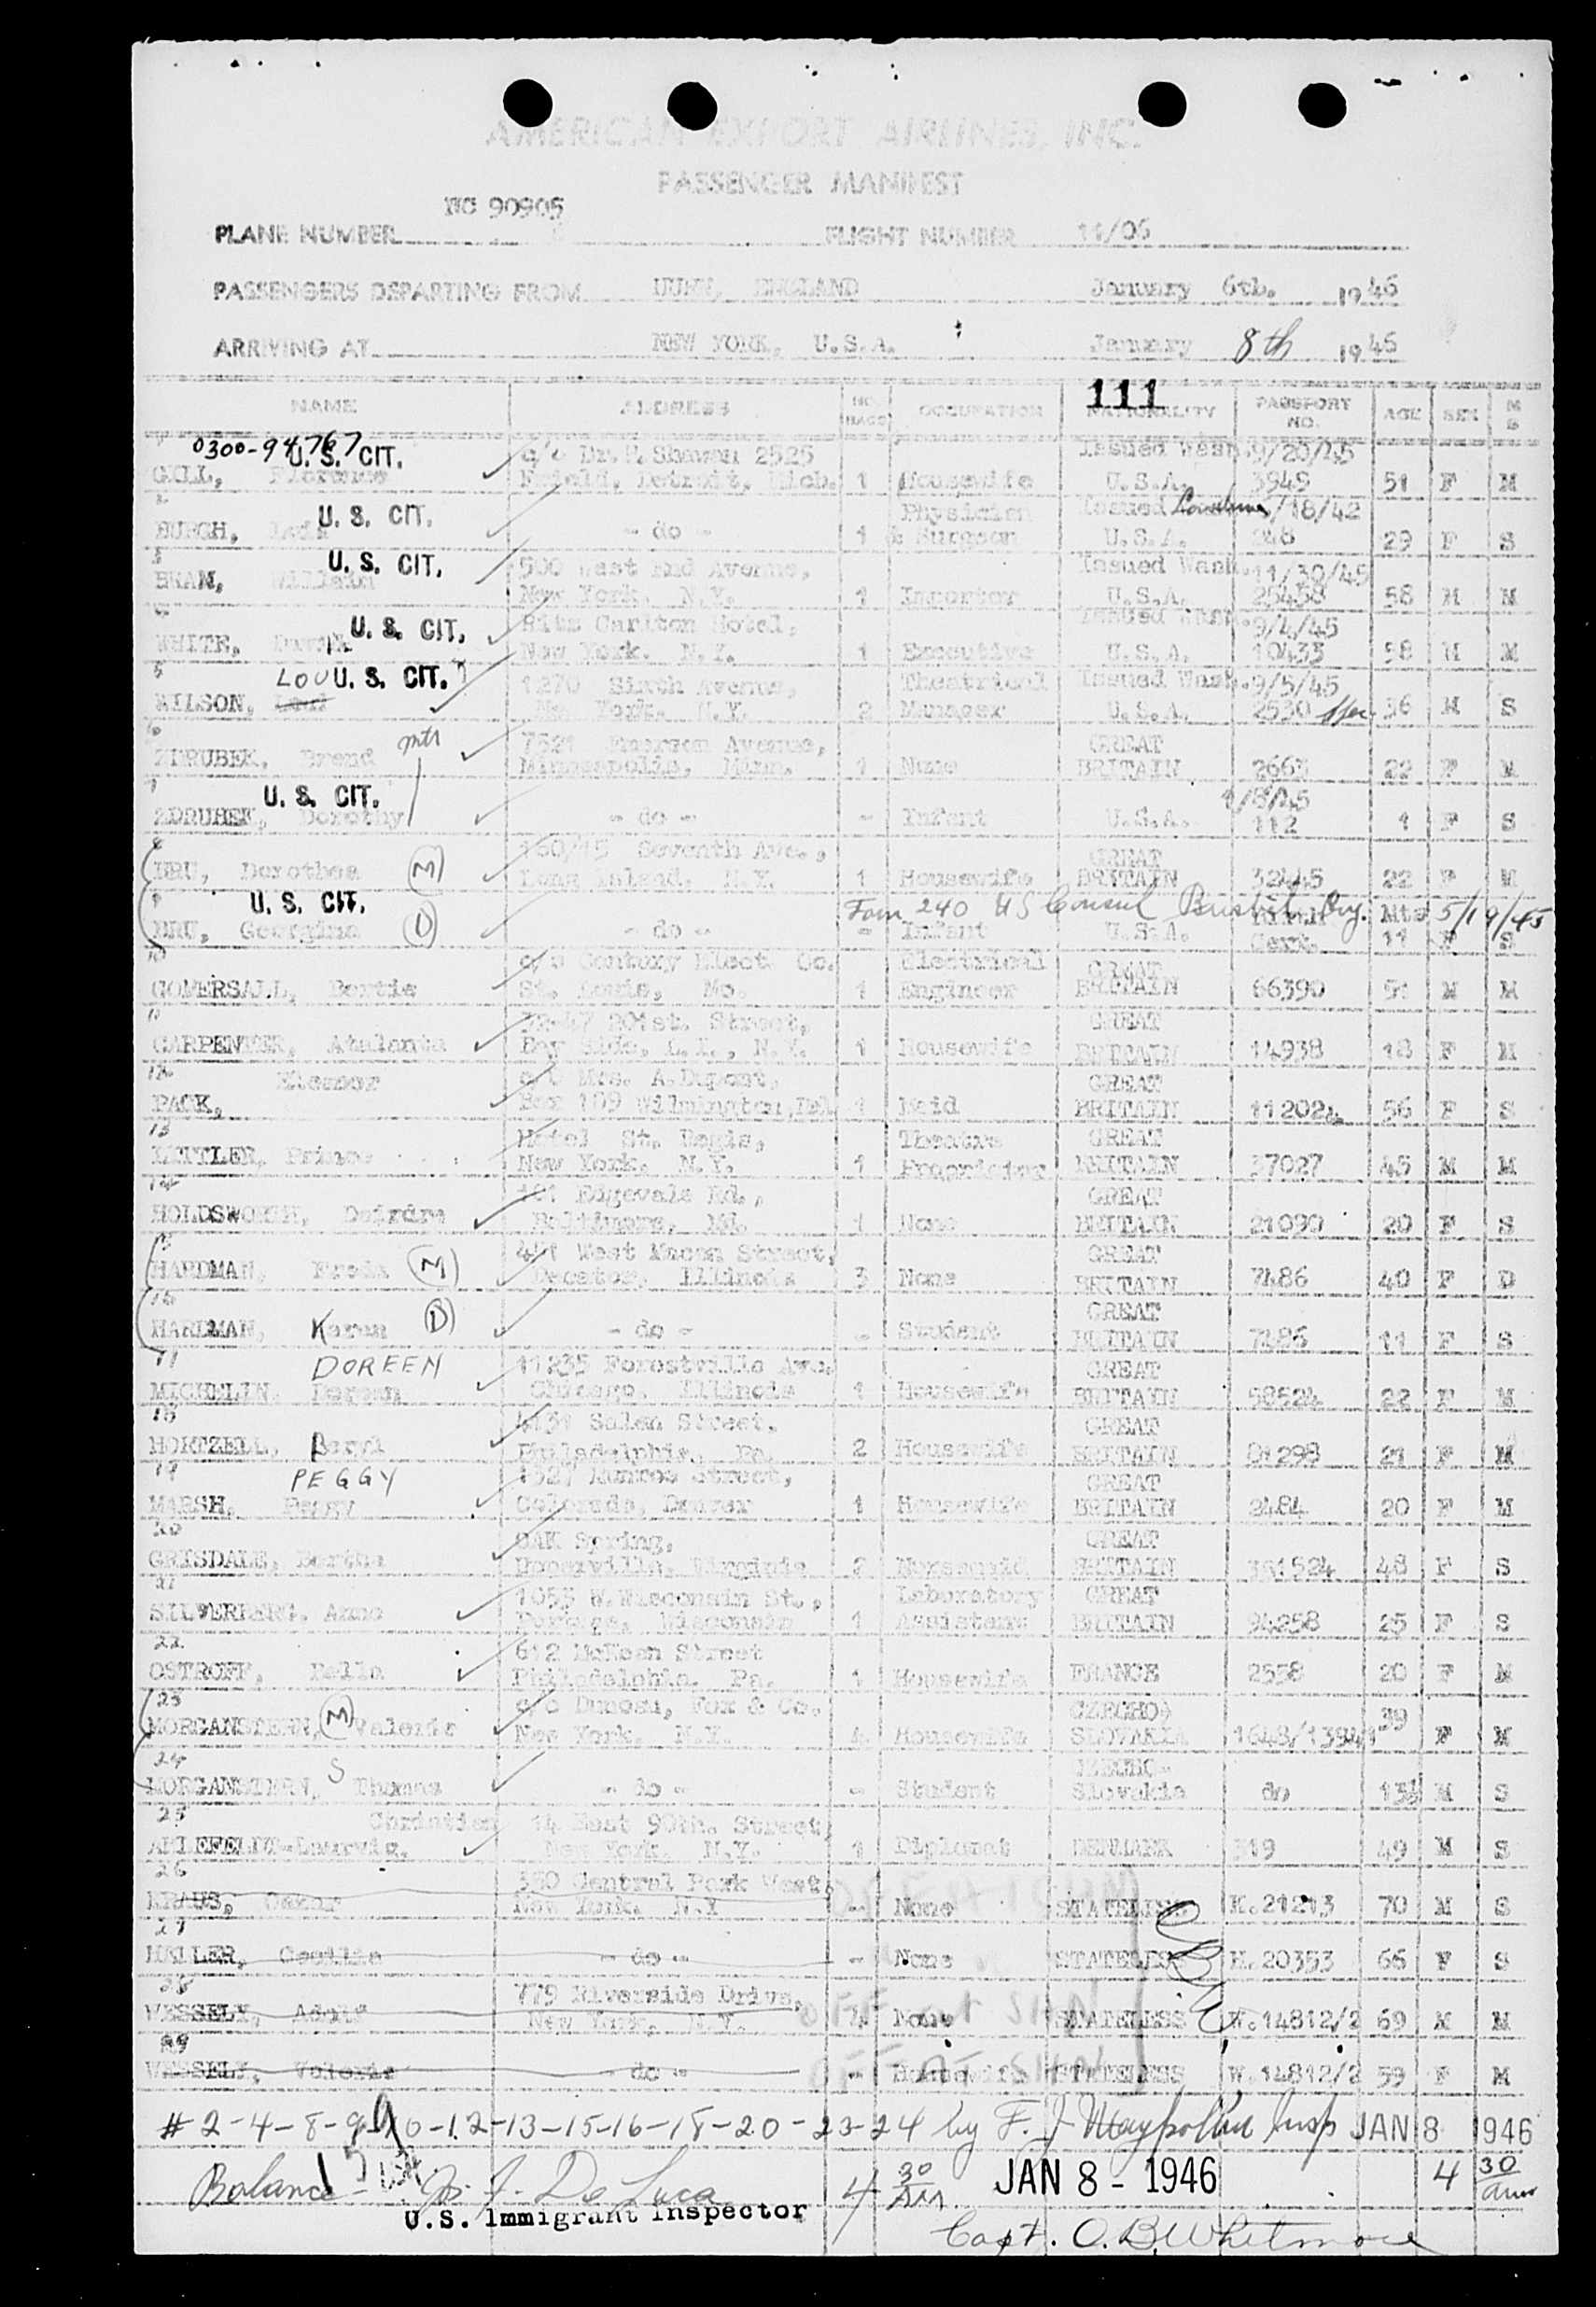 AMERICAN EXPORT AIRLINES, INC.
PASSENGER MANIFEST
PLANE NUMBER NC 90905 FLIGHT NUMBER 11/06
PASSENGERS DEPARTING FROM ENGLAND January 6th. 1946
ARRIVING AT NEW YORK, U.S.A. January 8th 1946
111
NAME ADDRESS NO. BAGS OCCUPATION NATIONALITY PASSPORT NO. AGE SEX M S
0300-94767 U. S. CIT. c/o Dr. 2525 Issued Wash. 9/20/45
Florence Detroit, Mich. 1 Housewife U.S.A. 3949 51 F M
2 U. S. CIT. Physician Issued London /18/42
BURCH, - do - 1 & Surgeon U.S.A. 248 29 F S
3 U. S. CIT. 500 West End Avenue, Issued Wash. 11/30/45
William New York, N.Y. 1 Importer U.S.A. 25438 58 M M
4 U. S. CIT. Ritz Carlton Hotel, Issued Wash. 9/4/45
WHITE, New York. N.Y. 1 Executive U.S.A. 10433 58 M M
5 LOU U. S. CIT. 1270 Sixth Avenue, Theatrical Issued Wash. 9/5/45
WILSON, New York. N.Y. 2 Manager U.S.A. 2530 36 M S
6 mth 7521 Emerson Avenue, GREAT
ZDRUBEK, Brend Minneapolis, Minn. 1 None BRITAIN 2663 22 F M
7 U. S. CIT. 1/8/45
ZDRUBEK, Dorothy - do - - Infant U.S.A. 112 1 F S
8 Seventh Ave., GREAT
BRU, Dorothea (M) Long Island, N.Y. 1 Housewife BRITAIN 32445 22 F M
9 U. S. CIT. Form 240 US Consul Bristol Eng. Birth Mts 5/19/45
BRU, Georgina (D) - do - - Infant U.S.A. Cert. 11 F S
10 c/o Century Elect. Co. Electrical GREAT
GOMERSALL, Bertie St. Louis, Mo. 1 Engineer BRITAIN 66390 51 M M
11 39-47 201st. Street, GREAT
CARPENTER, Atalanta Bay Side, L.I., N.Y. 1 Housewife BRITAIN 14938 18 F M
12 Eleanor c/o Mrs. A.Dupont, GREAT
PACK, Box 109 Wilmington, Del. 1 Maid BRITAIN 112024 56 F S
13 Hotel St. Regis, Theatre GREAT
LITTLER, Prince New York. N.Y. 1 Proprietor BRITAIN 37027 45 M M
14 Edgevale Rd., GREAT
HOLDSWORTH, Deirdre Baltimore, Md. 1 None BRITAIN 21090 20 F S
15 West Macon Street, GREAT
HARDMAN, Freda (M) Decator, Illinois 3 None BRITAIN 7486 40 F D
16 GREAT
HARDMAN, Karen (D) - do - - Student BRITAIN 7486 11 F S
17 DOREEN 11235 Forestville Ave. GREAT
MICHELIN, Doreen Chicago, Illinois 1 Housewife BRITAIN 58524 22 F M
18 4131 Salem Street, GREAT
HORTZELL, Beryl Philadelphia, Pa. 2 Housewife BRITAIN 01298 21 F M
19 PEGGY 1527 Monroe Street, GREAT
MARSH, Peggy Colorado, Denver 1 Housewife BRITAIN 2484 20 F M
20 OAK Spring, GREAT
GRISDALE, Bertha Upperville, Virginia 2 BRITAIN 351524 48 F S
21 1053 W.Wisconsin St., Laboratory GREAT
SILVERBERG, Anne Portage, Wisconsin 1 Assistant BRITAIN 94258 25 F S
22 612 McKean Street
OSTROFF, Philadelphia. Pa. 1 Housewife FRANCE 2558 20 F M
23 c/o Duncan, Fox & Co. CZECHO- 39
MORGANSTERN, (M) Valerie New York, N.Y. 4 Housewife SLOVAKIA 1648/13941 F M
24 S CZECHO-
MORGANSTERN, Thomas - do - - Student Slovakia do 13½ M S
25 Christian 14 East 90th. Street,
AHLEFELDT-Laurvig, New York, N.Y. 1 Diplomat DENMARK 319 49 M S
26 350 Central Park West,
KRAUS, Oskar New York. N.Y - None STATELESS K.21213 70 M S
27
HELLER, Cecilia - do - - None STATELESS H.20353 66 F S
28 779 Riverside Drive,
WESSELY, Adolf New York, N.Y. 4 None STATELESS W.14812/2 69 M M
29
WESSELY, Valerie - do - - Housewife STATELESS W.14812/2 59 F M
# 2-4-8-9-10-12-13-15-16-18-20-23-24 by F. J. Insp JAN 8 1946
Balance - Jos. J. De Luca 4 30 AM JAN 8 - 1946 4 30 am
U.S. Immigrant Inspector
Capt. O. B. Whitmore